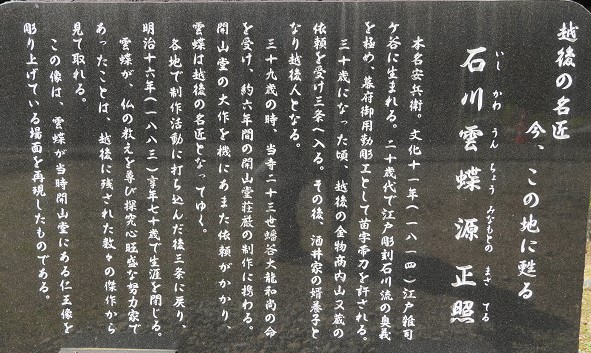 越後の名匠
今、この地に甦る
いしかわうんちょうみなもとのまさてる
石川雲蝶源正照
本名安兵衛。文化十一年(一八一四)江戸雑司
ケ谷に生まれる。二十歳代で江戸彫刻石川流の奥義
を極め、幕府御用勤彫工として苗字帯刀を許される。
三十歳になった頃、越後の金物商内山又蔵の
依頼を受け三条へ入る。その後、酒井家の婿養子と
なり越後人となる。
三十九歳の時、当寺二十三世蟠谷大龍和尚の命
を受け、約六年間の開山堂荘厳の制作に携わる。
開山堂の大作を機にあまた依頼がかかり、
雲蝶は越後の名匠となってゆく。
各地で制作活動に打ち込んだ後三条に戻り、
明治十六年(一八八三)享年七十歳で生涯を閉じる。
雲蝶が、仏の教えを尊び探究心旺盛な努力家で
あったことは、越後に残された数々の傑作から
見て取れる。
この像は、雲蝶が当時開山堂にある仁王像を
彫り上げている場面を再現したものである。